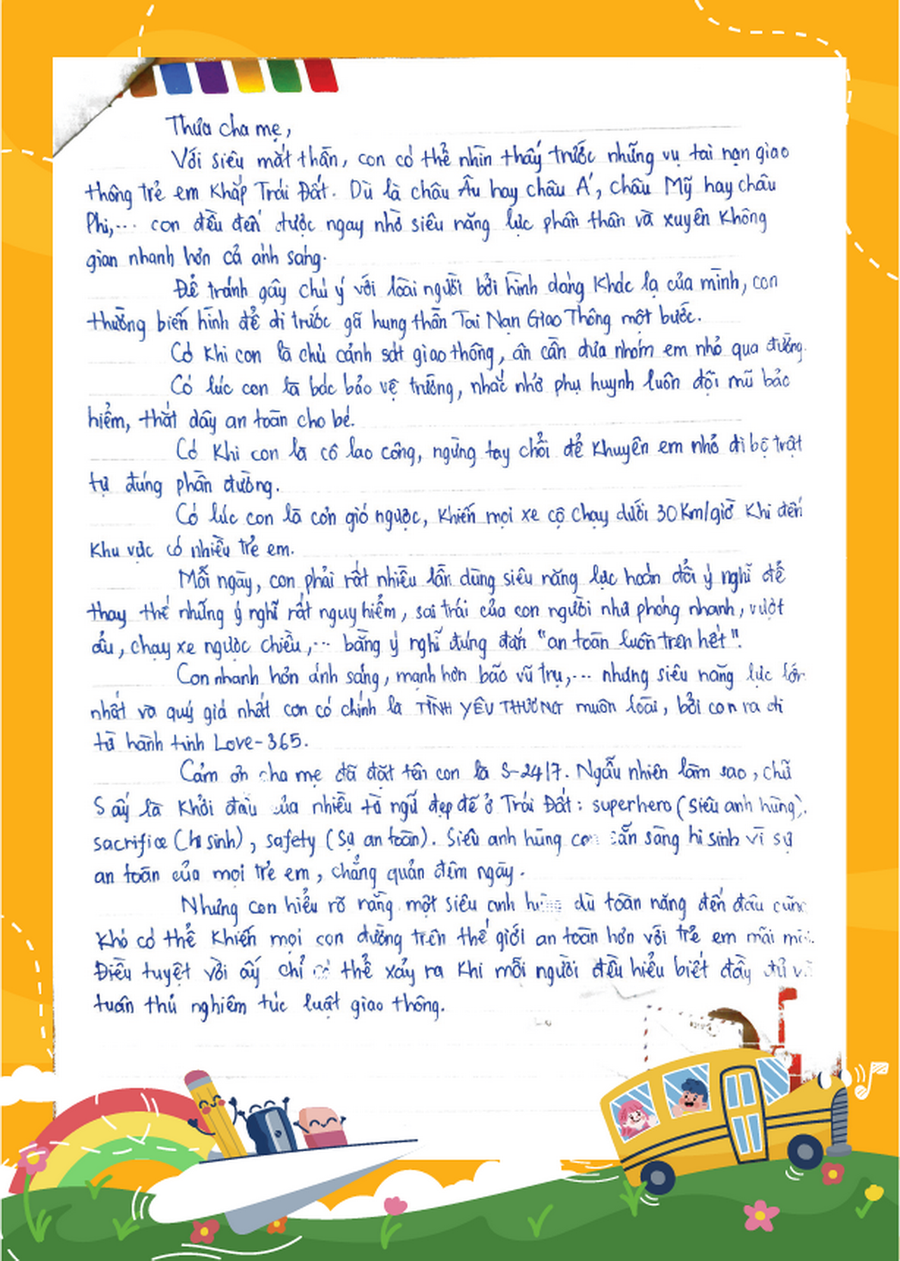 Thưa cha mẹ,
Với siêu mắt thần, con có thể nhìn thấy trước những vụ tai nạn giao
thông trẻ em khắp Trái Đất. Dù là châu Âu hay châu Á, châu Mỹ hay châu
Phi,... con đều đến được ngay nhờ siêu năng lực phân thân và xuyên không
gian nhanh hơn cả ánh sáng.
Để tránh gây chú ý với loài người bởi hình dáng khác lạ của mình, con
thường biến hình để đi trước gã hung thần Tai Nạn Giao Thông một bước.
Có khi con là chú cảnh sát giao thông, ân cần đưa nhóm em nhỏ qua đường.
Có lúc con là bác bảo vệ trường, nhắc nhở phụ huynh luôn đội mũ bảo
hiểm, thắt dây an toàn cho bé.
Có khi con là cô lao công, ngừng tay chổi để khuyên em nhỏ đi bộ trật
tự đúng phần đường.
Có lúc con là cơn gió ngược, khiến mọi xe cộ chạy dưới 30 Km/giờ khi đến
khu vực có nhiều trẻ em.
Mỗi ngày, con phải rất nhiều lần dùng siêu năng lực hoán đổi ý nghĩ để
thay thế những ý nghĩ rất nguy hiểm, sai trái của con người như phóng nhanh, vượt
ẩu, chạy xe ngược chiều,... bằng ý nghĩ đúng đắn "an toàn luôn trên hết".
Con nhanh hơn ánh sáng, mạnh hơn bão vũ trụ,... nhưng siêu năng lực lớn
nhất và quý giá nhất con có chính là TÌNH YÊU THƯƠNG muôn loài, bởi con ra đi
từ hành tinh Love-365.
Cảm ơn cha mẹ đã đặt tên con là S-24/7. Ngẫu nhiên làm sao, chữ
S ấy là khởi đầu của nhiều từ ngữ đẹp đẽ ở Trái Đất: superhero (siêu anh hùng),
sacrifice (hi sinh), safety (sự an toàn). Siêu anh hùng con sẵn sàng hi sinh vì sự
an toàn của mọi trẻ em, chẳng quản đêm ngày.
Nhưng con hiểu rõ rằng một siêu anh hùng dù toàn năng đến đâu cũng
khó có thể khiến mọi con đường trên thế giới an toàn hơn với trẻ em mãi mãi.
Điều tuyệt vời ấy chỉ có thể xảy ra khi mỗi người đều hiểu biết đầy đủ và
tuân thủ nghiêm túc luật giao thông.